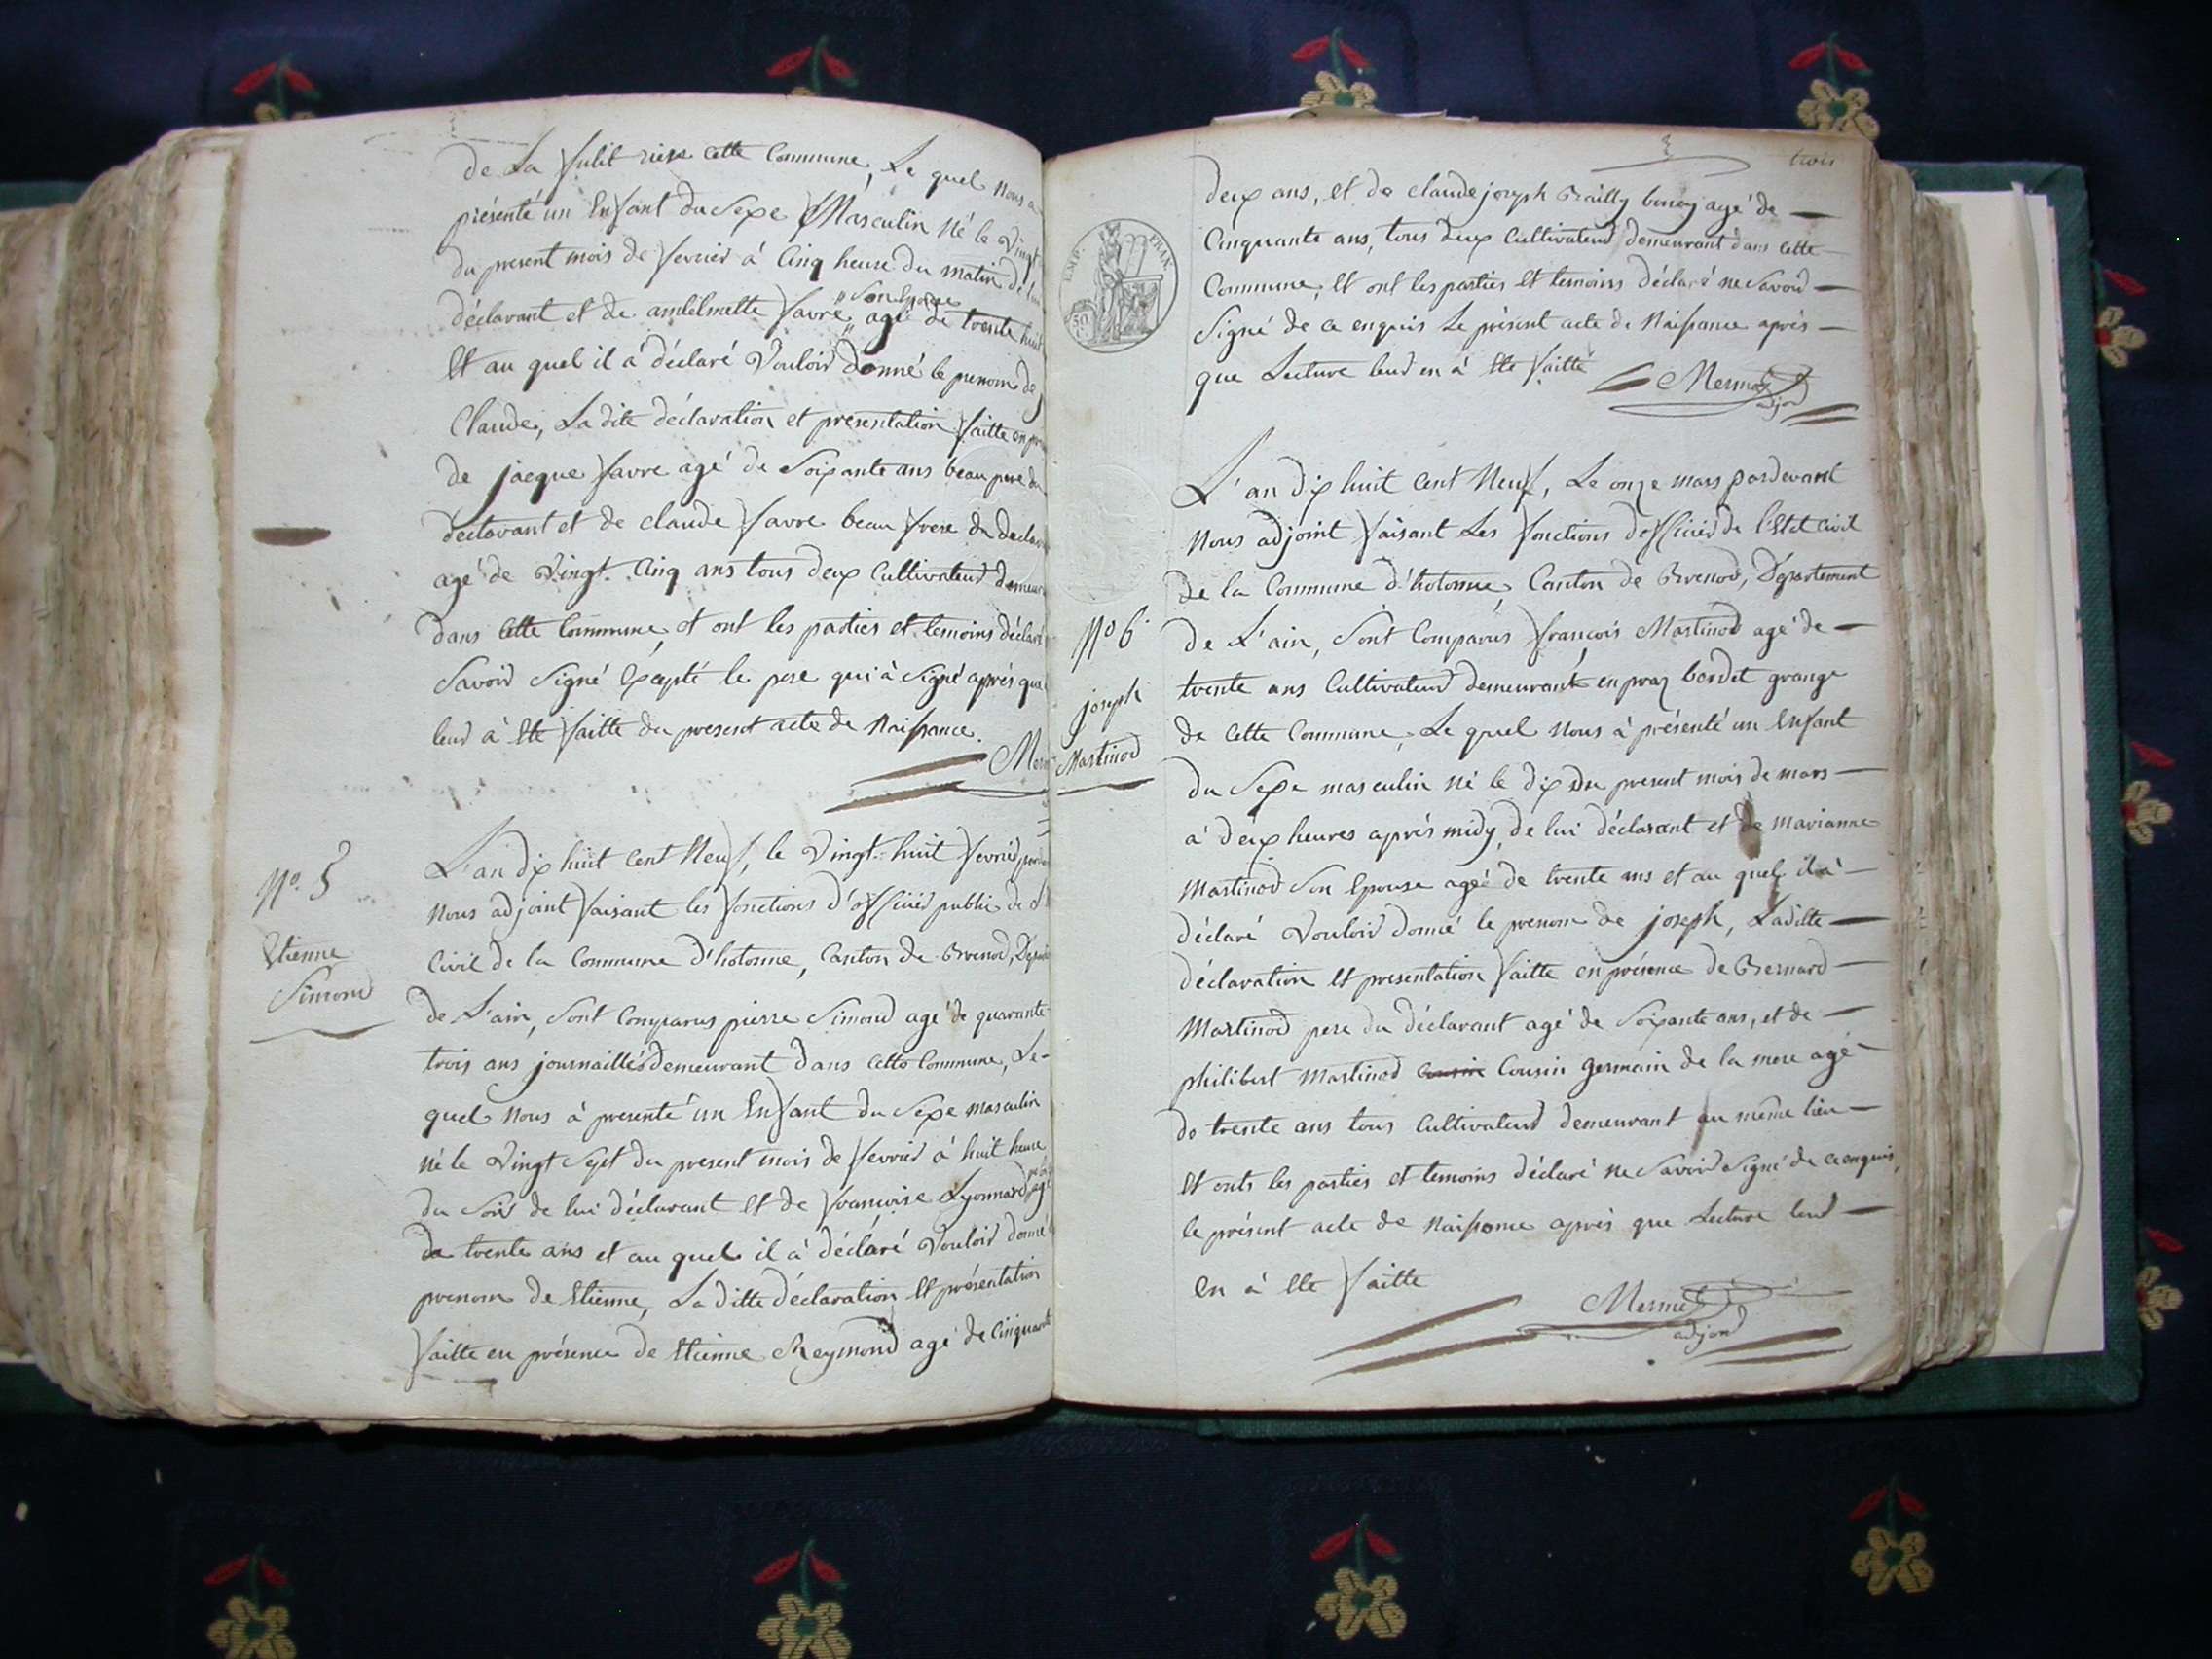 de La fulit riere cette Commune, Le quel nous a
présenté un Enfant du Sexe Masculin Né le Vingt
du present mois de fevrier à Cinq heure du matin de lui
son Epouse
déclarant et de favre agé de trente huit
Et au quel il à déclaré Vouloir donné le prenom de
Claude, La dite déclaration et presentation faitte en
de jacque favre agé de Soixante ans beau pere du
déclarant et de claude favre beau frere du
agé de Vingt Cinq ans tous deux Cultivateur
dans Cette Commune, et ont les parties et temoins déclaré
Savoir Signé Excepté le pere qui à Signé après que
leur à Ete faitte du present acte de Naissance.
No. 5
Etienne
Simond
L'an dix huit Cent Neuf, le Vingt huit fevrier
Nous adjoint faisant les fonctions d'officier public de
Civil de la Commune d'hotonne, Canton de Brenod,
de L'ain, Sont Comparus pierre Simond agé de quarante
trois ans journaillé demeurant dans Cette Commune, Le-
quel Nous à presenté un Enfant du Sexe masculin
né le Vingt Sept du present mois de fevrier à huit heure
du Soir de lui déclarant Et de francoise Lyonnard agé
de trente ans et au quel il à déclaré Vouloir donné
prenom de Etienne, La ditte déclaration Et présentation
faitte en présence de Etienne Reymond agé de Cinquante
trois
EMP. FRAN.
deux ans, Et de claude joseph agé de
Cinquante ans, tous deux Cultivateur demeurant dans Cette
Commune, Et ont les parties Et temoins déclaré ne Savoir
Signé de ce enquis Le présent acte de Naissance après
que Lecture leur en à Ete faitte
Mermet
adjoin
No 6
joseph
Martinod
L'an dix huit Cent Neuf, Le onze mars pardevant
Nous adjoint faisant Les fonctions d'officier de l'Etat Civil
de la Commune d'hotonne, Canton de Brenod, Département
de L'ain, Sont Comparus francois Martinod agé de
trente ans Cultivateur demeurant en praz bordet grange
de Cette Commune, Le quel Nous à présenté un Enfant
du Sexe masculin né le dix du present mois de mars
à deux heures après midy, de lui déclarant et de Marianne
Martinod Son Epouse agée de trente ans et au quel il à
déclaré Vouloir donné le prenom de joseph, Laditte
déclaration Et presentation faitte en présence de Bernard
Martinod pere du déclarant agé de Soixante ans, et de
philibert Martinod Cousin Cousin germain de la mere agé
de trente ans tous Cultivateur demeurant au même lieu
Et onts les parties et temoins déclaré ne Savoir Signé de ce enquis
le présent acte de Naissance après que Lecture leur
en à Ete faitte
Mermet
adjoin